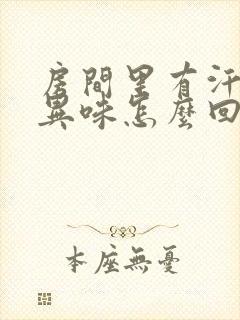 房間里有汗
異味怎麼回
本座無憂